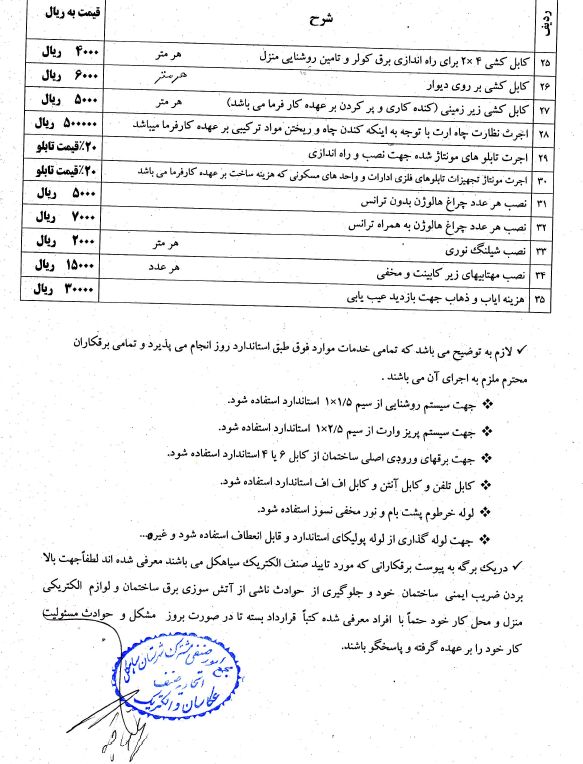 ردیف شرح قیمت به ریال
۲۵ کابل کشی ۴×۲ برای راه اندازی برق کولر و تامین روشنایی منزل هر متر ۴۰۰۰ ریال
۲۶ کابل کشی بر روی دیوار هر متر ۶۰۰۰ ریال
۲۷ کابل کشی زیر زمینی (کنده کاری و پر کردن بر عهده کار فرما می باشد) هر متر ۵۰۰۰ ریال
۲۸ اجرت نظارت چاه ارت با توجه به اینکه کندن چاه و ریختن مواد ترکیبی بر عهده کارفرما میباشد ۵۰۰۰۰۰ ریال
۲۹ اجرت تابلو های مونتاژ شده جهت نصب و راه اندازی ۲۰٪قیمت تابلو
۳۰ اجرت مونتاژ تجهیزات تابلوهای فلزی ادارات و واحد های مسکونی که هزینه ساخت بر عهده کارفرما می باشد ۲۰٪قیمت تابلو
۳۱ نصب هر عدد چراغ هالوژن بدون ترانس ۵۰۰۰ ریال
۳۲ نصب هر عدد چراغ هالوژن به همراه ترانس ۷۰۰۰ ریال
۳۳ نصب شیلنگ نوری هر متر ۲۰۰۰ ریال
۳۴ نصب مهتابیهای زیر کابینت و مخفی هر عدد ۱۵۰۰۰ ریال
۳۵ هزینه ایاب و ذهاب جهت بازدید عیب یابی ۳۰۰۰۰ ریال
✓ لازم به توضیح می باشد که تمامی خدمات موارد فوق طبق استاندارد روز انجام می پذیرد و تمامی برقکاران
محترم ملزم به اجرای آن می باشند .
❖ جهت سیستم روشنایی از سیم ۱/۵×۱ استاندارد استفاده شود.
❖ جهت سیستم پریز وارت از سیم ۲/۵×۱ استاندارد استفاده شود.
❖ جهت برقهای ورودی اصلی ساختمان از کابل ۶ یا ۴ استاندارد استفاده شود.
❖ کابل تلفن و کابل آنتن و کابل اف اف استاندارد استفاده شود.
❖ لوله خرطوم پشت بام و نور مخفی نسوز استفاده شود.
❖ جهت لوله گذاری از لوله پولیکای استاندارد و قابل انعطاف استفاده شود و غیره...
✓ دریک برگه به پیوست برقکارانی که مورد تایید صنف الکتریک سیاهکل می باشند معرفی شده اند لطفاًجهت بالا
بردن ضریب ایمنی ساختمان خود و جلوگیری از حوادث ناشی از آتش سوزی برق ساختمان و لوازم الکتریکی
منزل و محل کار خود حتماً با افراد معرفی شده کتباً قرارداد بسته تا در صورت بروز مشکل و حوادث مسئولیت
کار خود را بر عهده گرفته و پاسخگو باشند.
مجمع امور صنفی مشترک شهرستان سیاهکل
اتحادیه صنف
عکاسان و الکتریک